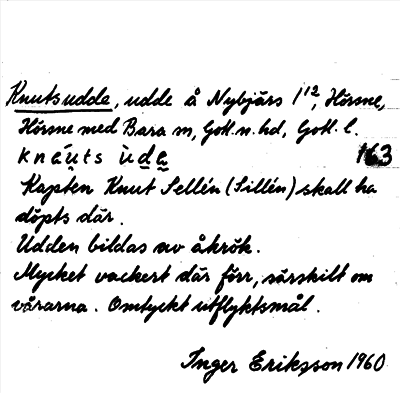 Knutsudde, udde å Nybjärs 1¹², Hörsne,
Hörsne med Bara sn, Gotl. n. hd, Gotl. l.
knáu̯ts ùde̯ 163
Kapten Knut Sellén (Sillén) skall ha
döpts där.
Udden bildas av åkrök.
Mycket vackert där förr, särskilt om
vårarna. Omtyckt utflyktsmål.
Inger Eriksson 1960